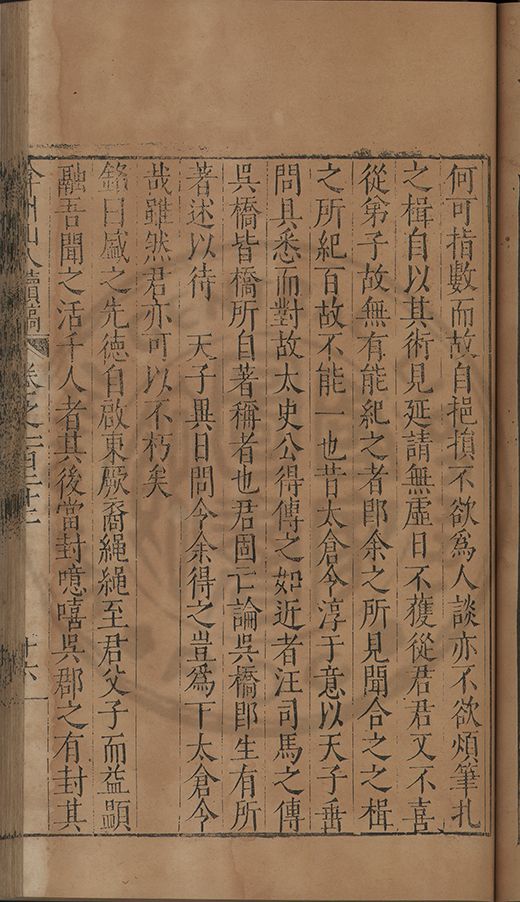 何可指數而故自挹損不欲爲人談亦不欲煩筆札
之楫自以其術見延請無虛日不獲從君君又不喜
從弟子故無有能紀之者卽余之所見聞合之之楫
之所紀百故不能一也昔太倉令淳于意以天子垂
問具悉而對故太史公得傳之如近者汪司馬之傳
吳橋皆橋所自著稱者也君固亡論吳橋卽生有所
著述以待　天子異日問令余得之豈爲下太倉令
哉雖然君亦可以不朽矣
銘曰盛之先德自啟東厥裔繩繩至君父子而益顯
融吾聞之活千人者其後當封噫嘻吳郡之有封其
弇州山人續稿 卷之一百
十六